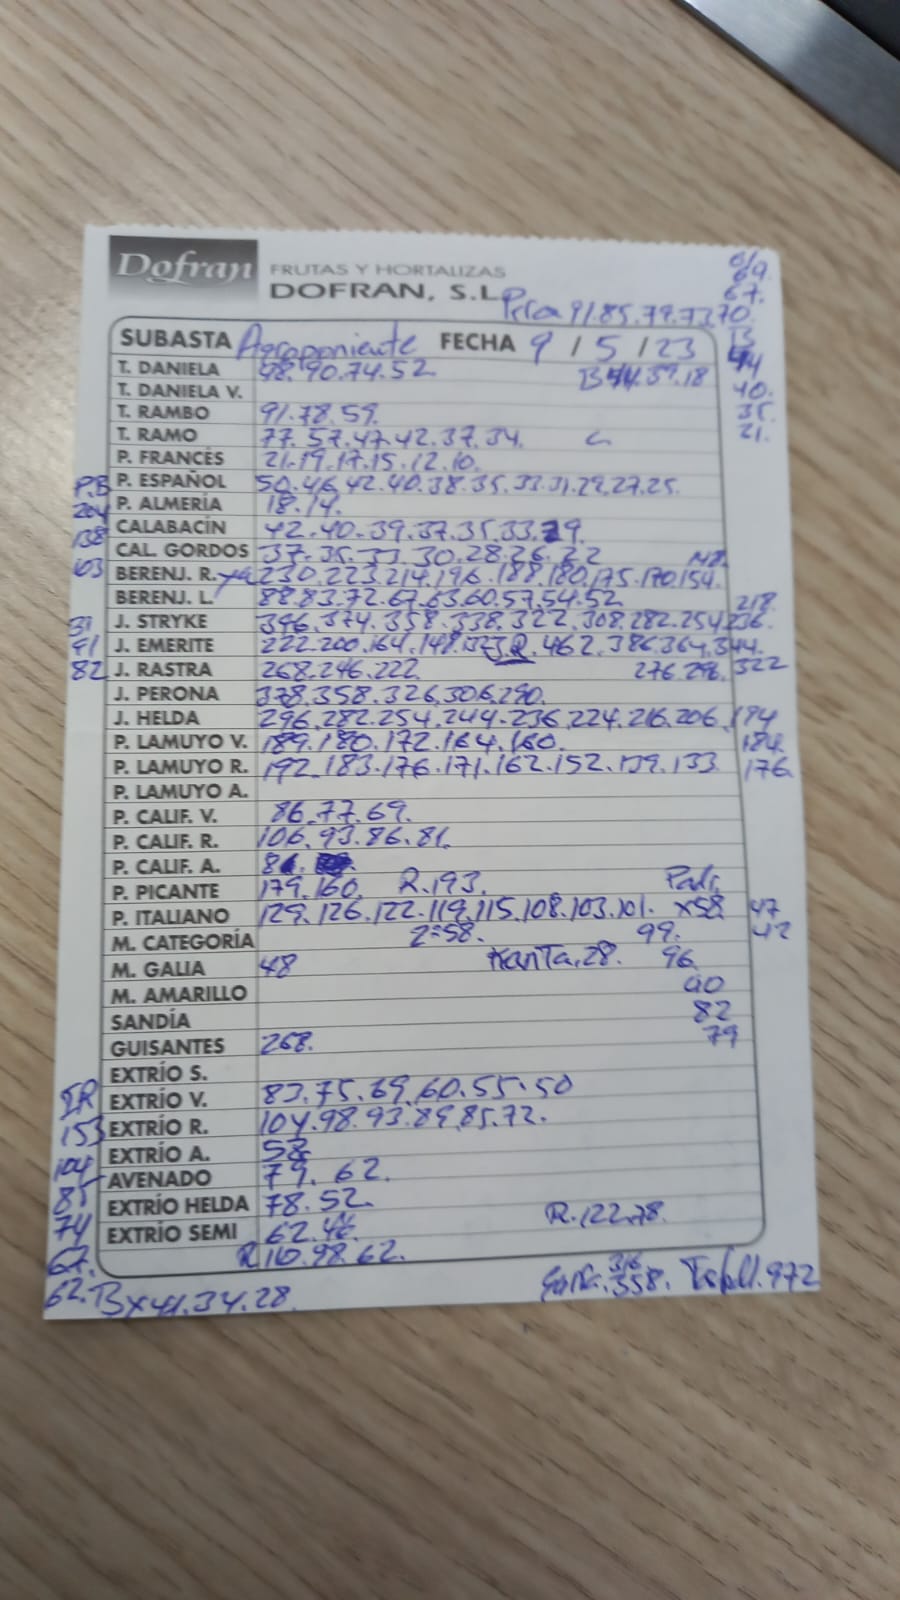 Dofran FRUTAS Y HORTALIZAS
DOFRAN, S.L.
Pera 91.85.79.73.70.
69.
67.
SUBASTA Agroponiente FECHA 9 / 5 / 23
T. DANIELA 98.90.74.52 B 44.39.18
T. DANIELA V. 40.
T. RAMBO 91.78.59. 35.
T. RAMO 77.57.47.42.37.34. 21.
P. FRANCÉS 21.19.17.15.12.10.
P.B P. ESPAÑOL 50.46.42.40.38.35.33.31.29.27.25.
204 P. ALMERÍA 18.14.
138 CALABACÍN 42.40.39.37.35.33.29.
103 CAL. GORDOS 37.35.33.30.28.26.22
BERENJ. R. 230.223.214.196.188.180.175.170.154.
BERENJ. L. 88.83.72.67.63.60.57.54.52 218.
J. STRYKE 396.374.358.338.322.308.282.254.236.
91 J. EMERITE 222.200.164.148.133.R.462.386.364.344.
82 J. RASTRA 268.246.222. 276.296. 322
J. PERONA 378.358.326.306.290.
J. HELDA 296.282.254.244.236.224.216.206.194
P. LAMUYO V. 189.180.172.164.160. 184.
P. LAMUYO R. 192.183.176.171.162.152.139.133. 176.
P. LAMUYO A.
P. CALIF. V. 86.77.69.
P. CALIF. R. 106.93.86.81.
P. CALIF. A.
P. PICANTE 179.160. R.193.
P. ITALIANO 129.126.122.119.115.108.103.101. x58 47
M. CATEGORÍA 2=58. 99. 42
M. GALIA 48 28. 96
M. AMARILLO 90
SANDÍA 82
GUISANTES 268. 79
EXTRÍO S.
EXTRÍO V. 83.75.69.60.55.50
153 EXTRÍO R. 104.98.93.89.85.72.
104 EXTRÍO A. 58
85 AVENADO 79.62.
74 EXTRÍO HELDA 78.52.
67. EXTRÍO SEMI 62.46. R.122.78.
R 110.98.62.
62. Bx41.34.28. 316 358. 972